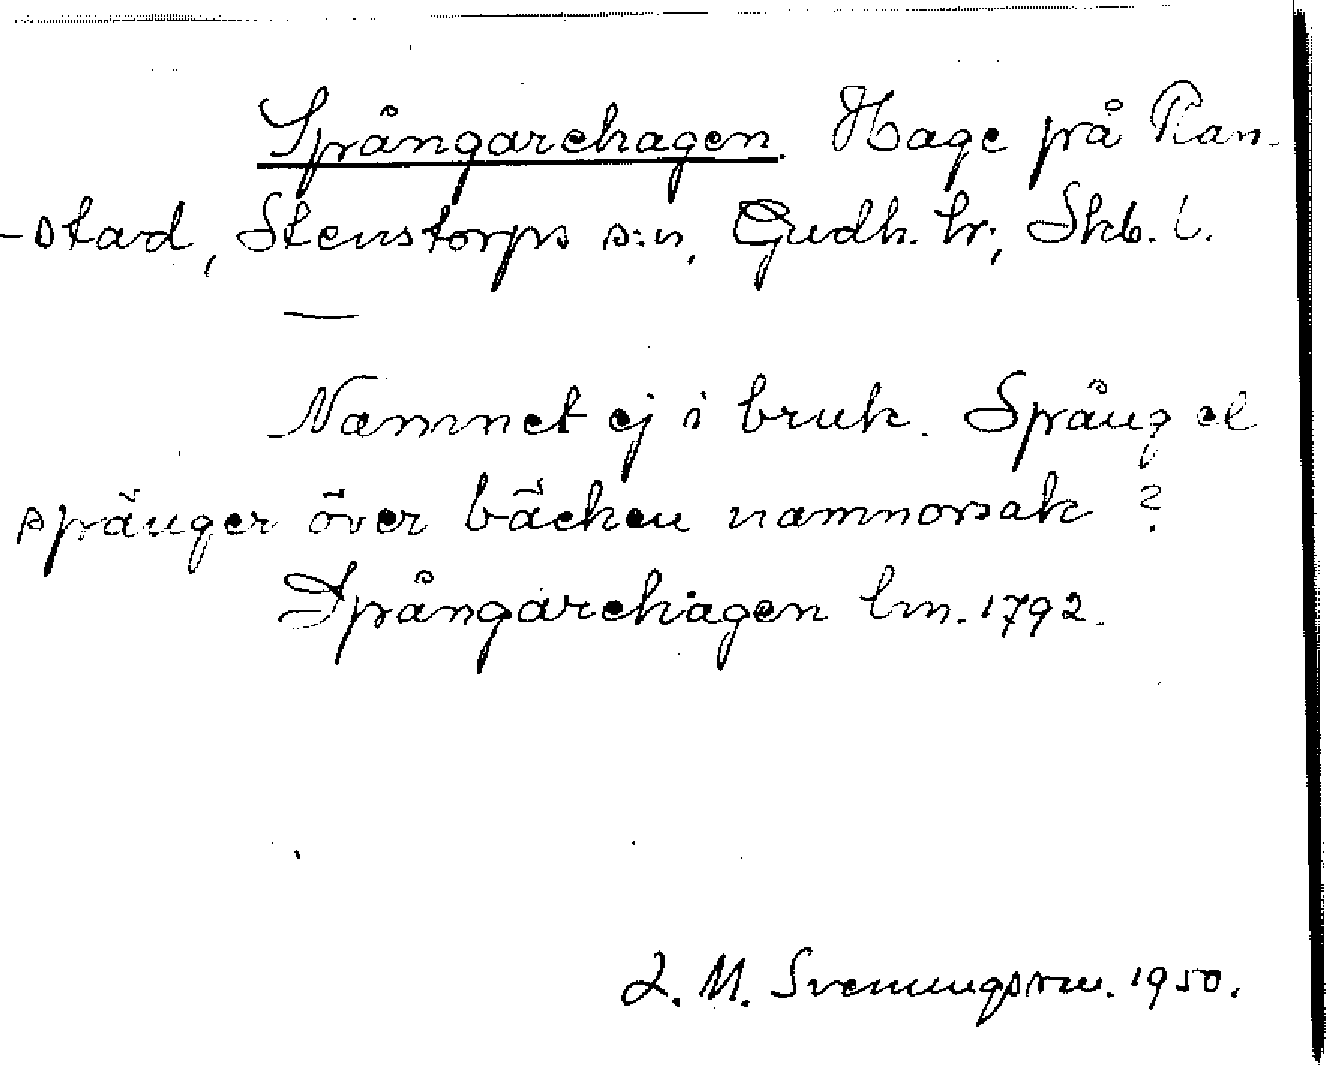 Spångarehagen. Hage på Ran-
-stad, Stenstorps s:n, Gudh. hr; Skb. l.
Namnet ej i bruk. Spång el
spänger över bäcken namnorsak ?
Spångarehagen lm. 1792.
L. M. Svenungsson. 1950.